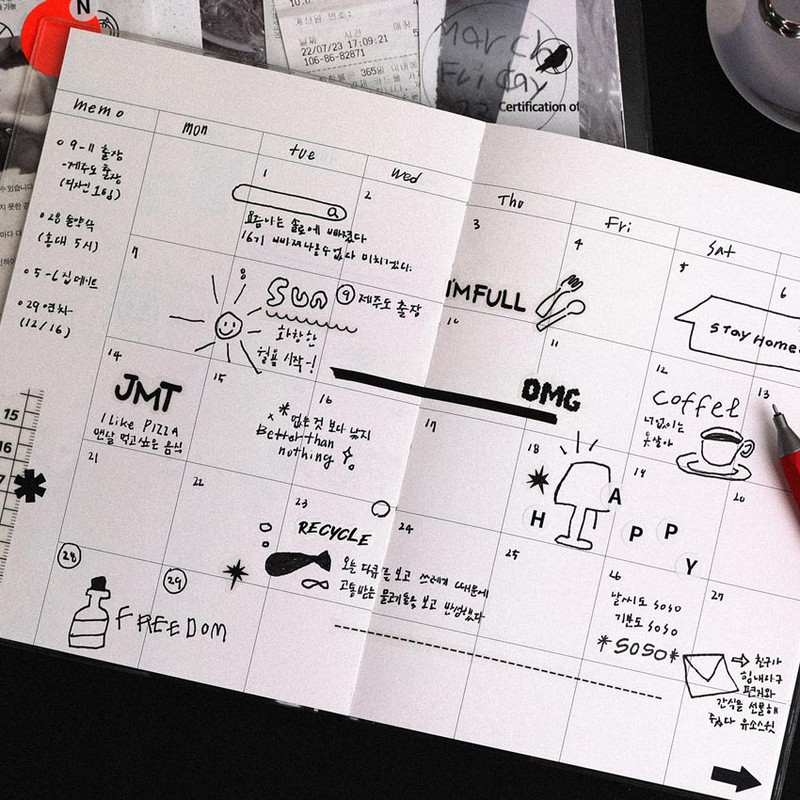 N
계산원 번호:
날짜 시간 매장
22/07/23 17:09:21
106-86-82871
March
Friday
Certification of
memo
mon
tue
wed
Thu
Fri
Sat
9-11 출장
-제주도 출장
(디자인 3팀)
28 술약속
(홍대 5시)
5-6 집 데이트
29 연차
(12/16)
1
요즘 나는 솔로에 빠졌다
16기 빠져나올 수 없다 미치겠다.
2
3
I'M FULL
4
5
Stay Home
6
7
8
Sun
화창한
월욜 시작-!
9 제주도 출장
10
11
OMG
12
coffee
너 없이는
못 살아
13
14
JMT
I Like PIZZA
맨날 먹고 싶은 음식
15
16
없는 것 보다 낫지
Better than
nothing
17
18
19
HAPPY
20
21
22
23
RECYCLE
오늘 다큐를 보고 쓰레기 때문에
고통받는 물고기들을 보고 반성했다
24
25
26
날씨도 soso
기분도 soso
*SOSO*
27
친구가
힘내라구
편지와
간식을 선물해
주었다 유소스윗
28
FREEDOM
29
15
16